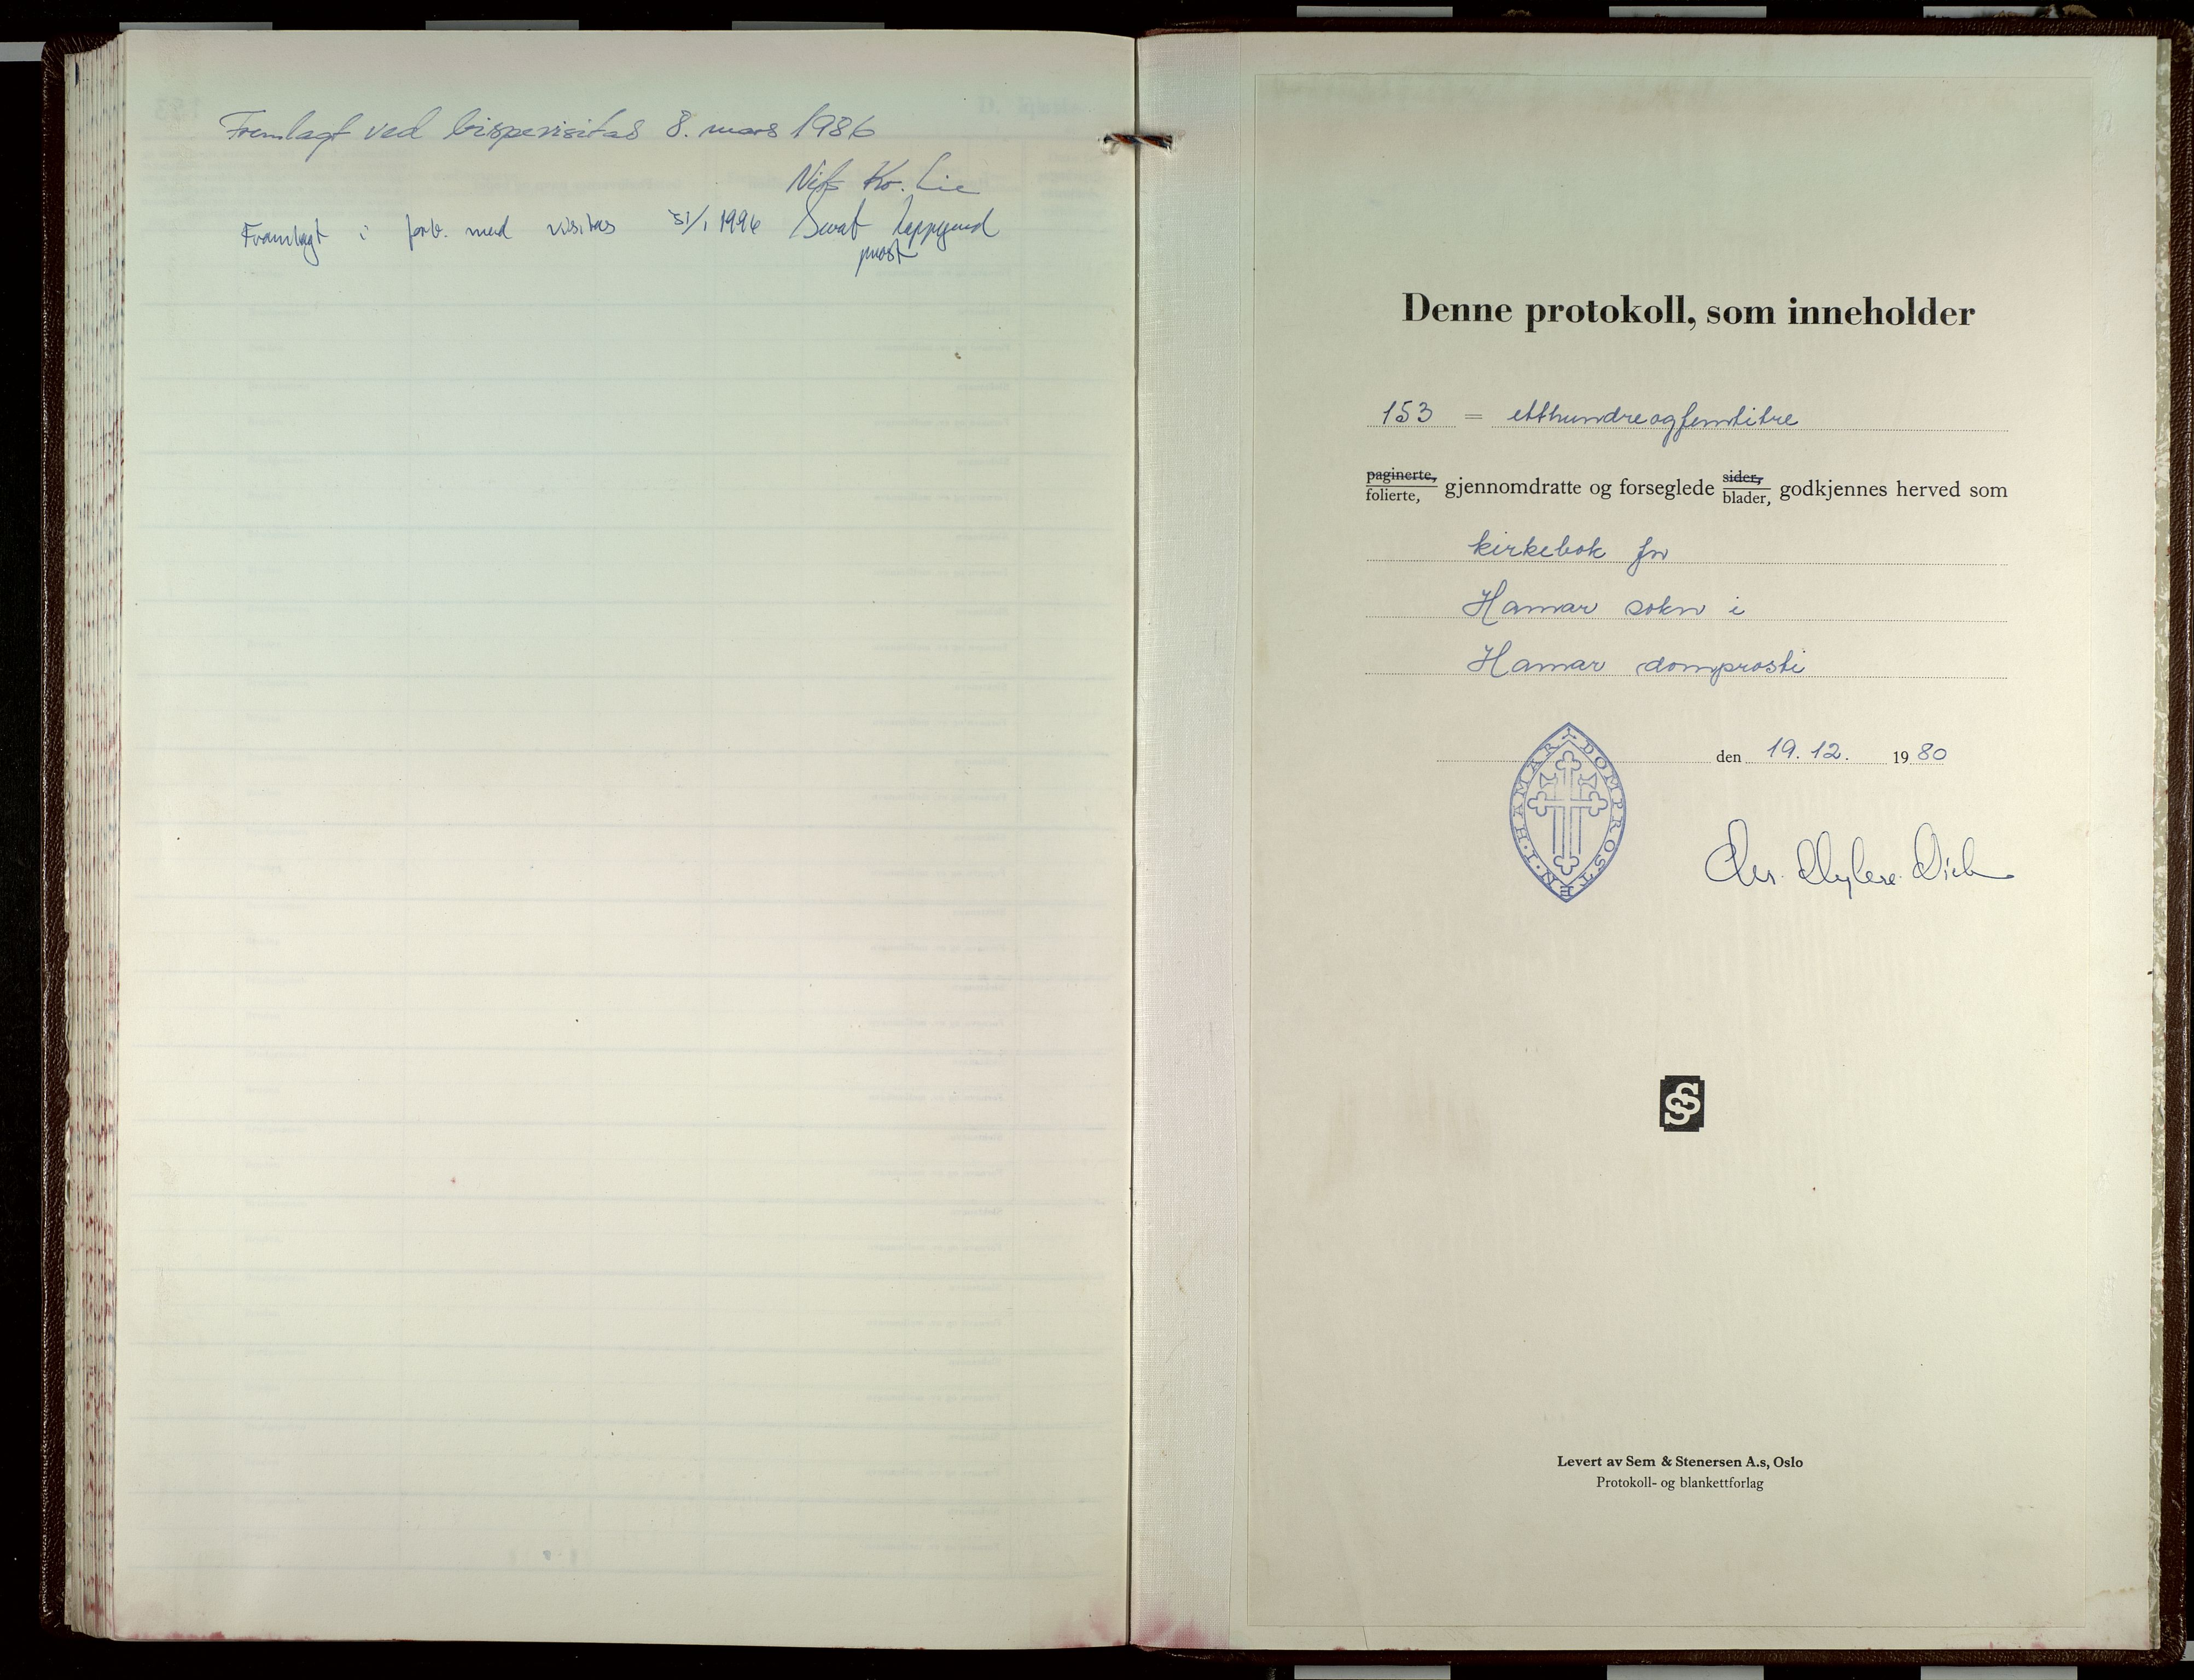 Fremlagt ved bispevisitas 8. mars 1986
Nils Kr. Lie
Framlagt i forb. med visitas 31/1 1996
prost
Denne protokoll, som inneholder
153 = etthundreogfemtitre
paginerte, sider,
folierte, gjennomdratte og forseglede blader, godkjennes herved som
kirkebok for
Hamar sokn i
Hamar domprosti
den 19.12. 1980
DOMPROSTEN · I · HAMAR
Levert av Sem & Stenersen A.s, Oslo
Protokoll- og blankettforlag